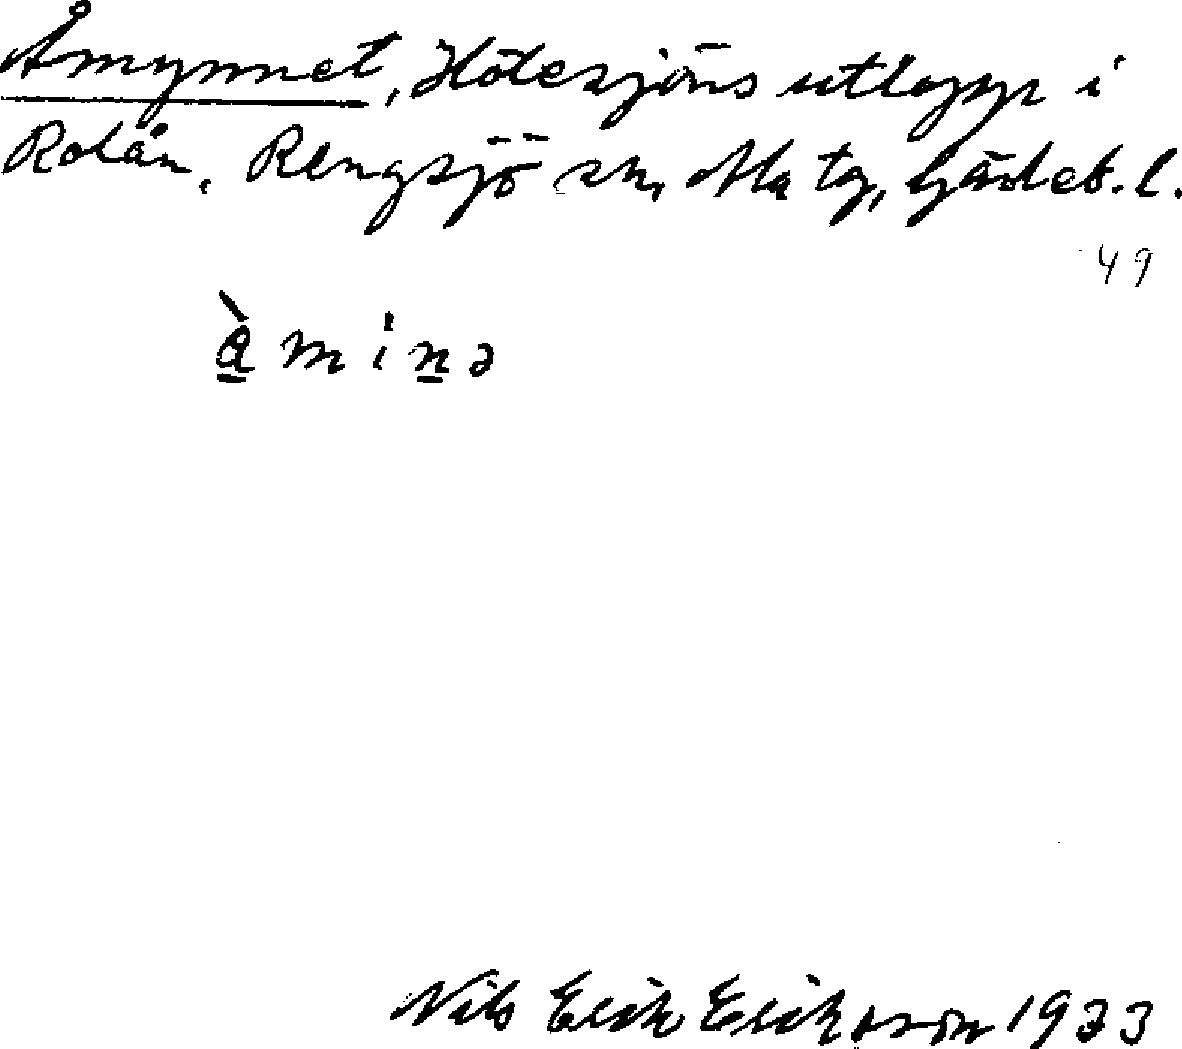 Åmynnet, Hötesjöns utlopp i
Rolån, Rengsjö sn, Ala tg, Gävleb. l.
49
å̀ m i n ə
Nils Erik Erikson 1933